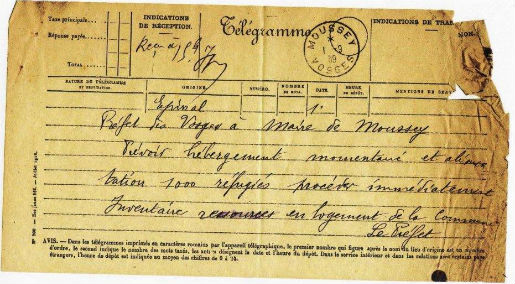 Taxe principale
Réponse payée
TOTAL
INDICATIONS
DE RÉCEPTION.
Télégramme
MOUSSEY
1 9
39
VOSGES
INDICATIONS DE TRA
ON.
NATURE DU TÉLÉGRAMME
ET DESTINATION.
ORIGINE.
NUMÉRO.
NOMBRE
DE MOTS.
DATE.
HEURE
DE DÉPÔT.
MENTIONS DE SER
Epinal
1er
Préfet des Vosges à Maire de Moussey
Prévoir hébergement momentané et alimen
tation 1000 réfugiés procéder immédiatement
Inventaire ressources en logement de la Commune
Le Préfet
AVIS. — Dans les télégrammes imprimés en caractères romains par l'appareil télégraphique, le premier nombre qui figure après le nom du lieu d'origine est un numéro
d'ordre, le second indique le nombre des mots taxés, les autres désignent la date et l'heure du dépôt. Dans le service intérieur et dans les relations avec certains pays
étrangers, l'heure de dépôt est indiquée au moyen des chiffres de 0 à 24.